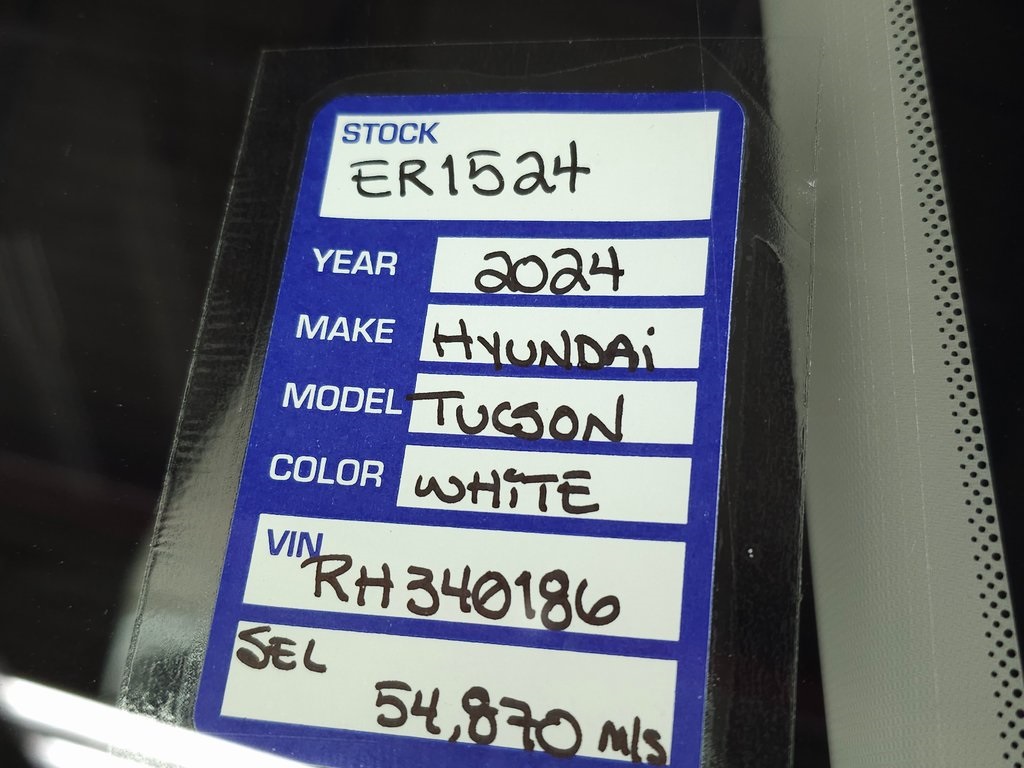 STOCK
ER1524
YEAR 2024
MAKE HYUNDAi
MODEL TUCSON
COLOR WHiTE
VIN
RH340186
SEL
54,870 m/s